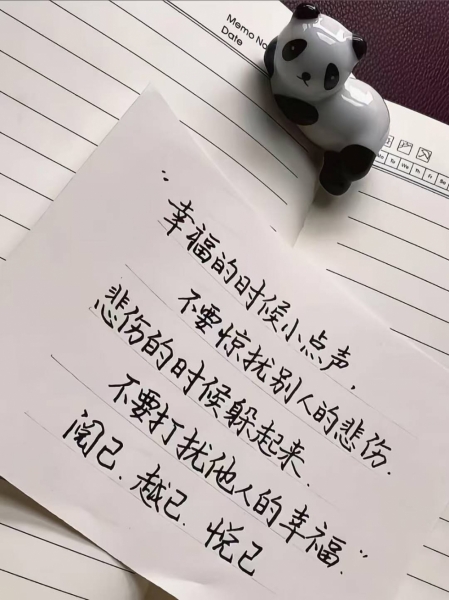 Memo No
Date
Mo Tu We Th Fr Sa
“幸福的时候小点声,
不要惊扰别人的悲伤.
悲伤的时候躲起来.
不要打扰他人的幸福.”
阅己.越己.悦己